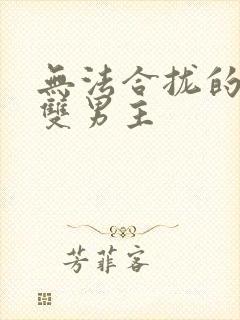 無法合拢的
雙男主
芳菲客